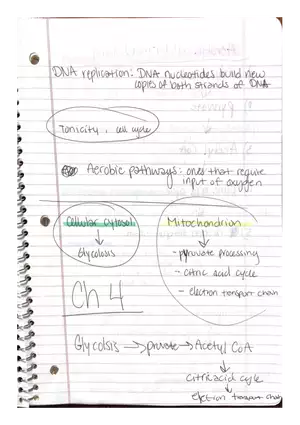 DNA replication: DNA nucleotides build new
copies of both strands of DNA
Tonicity, cell cycle
Aerobic pathways: ones that require
input of oxygen
Cellular cytosol
Mitochondrion
Glycolosis
- pyruvate processing
- citric acid cycle
- electron transport chain
Ch 4
Glycolsis → pruvate → Acetyl CoA
citric acid cycle
electron transport chain